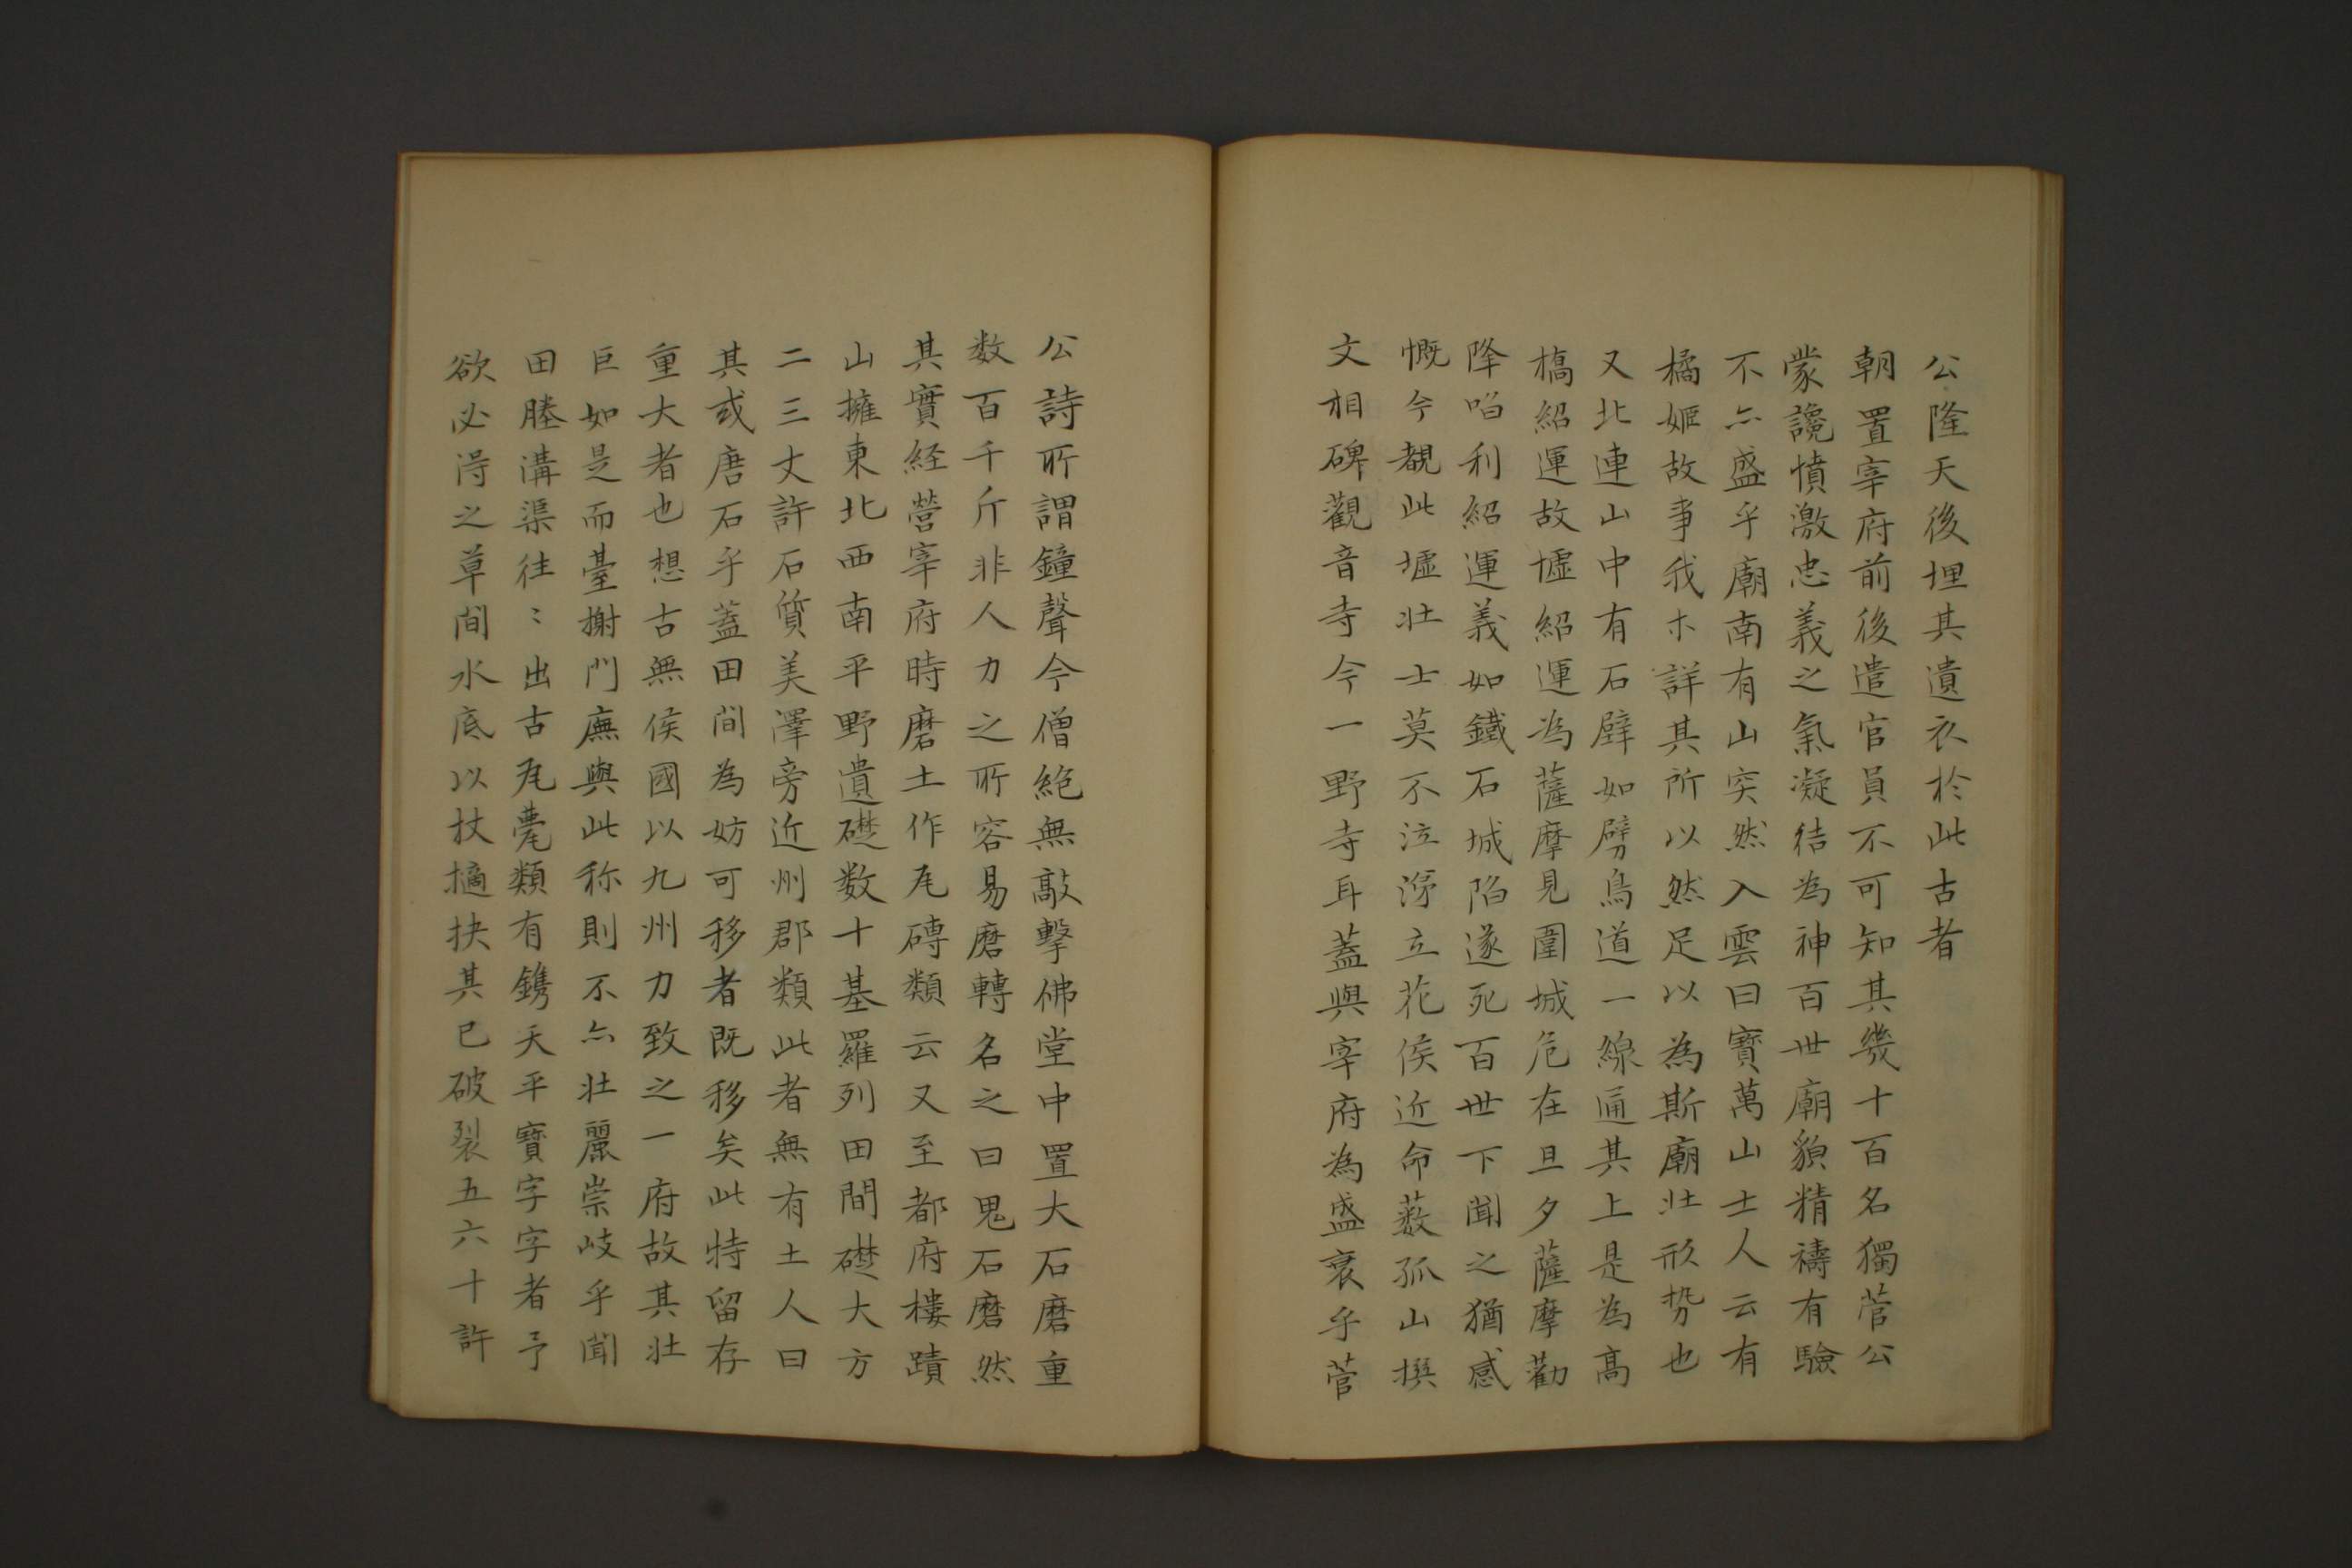 公隆天後埋其遺衣於此古者
朝置宰府前後遣官員不可知其幾十百名獨菅公
蒙讒憤激忠義之氣凝結為神百世廟貌精禱有驗
不亦盛乎廟南有山突然入雲曰寶萬山士人云有
橘姬故事我未詳其所以然足以為斯廟壯形势也
又北連山中有石壁如劈鳥道一線通其上是為高
槗紹運故墟紹運為薩摩見圍城危在旦夕薩摩勸
降啗利紹運義如鐵石城陷遂死百世下聞之猶感
慨今覩此墟壯士莫不泣涕立花侯近命薮孤山撰
文相碑觀音寺今一野寺耳蓋與宰府為盛衰乎菅
公詩所謂鐘聲今僧絶無敲擊佛堂中置大石磨重
数百千斤非人力之所容易磨轉名之曰鬼石磨然
其實経營宰府時磨土作瓦磚類云又至都府樓蹟
山擁東北西南平野遺礎数十基羅列田間礎大方
二三丈許石質美澤旁近州郡類此者無有土人曰
其或唐石乎蓋田間為妨可移者既移矣此特留存
重大者也想古無侯國以九州力致之一府故其壯
巨如是而臺榭門廡與此称則不亦壯麗崇岐乎聞
田塍溝渠往〻出古瓦甍類有鐫天平寶字字者予
欲必得之草間水底以杖擿抉其已破裂五六十許